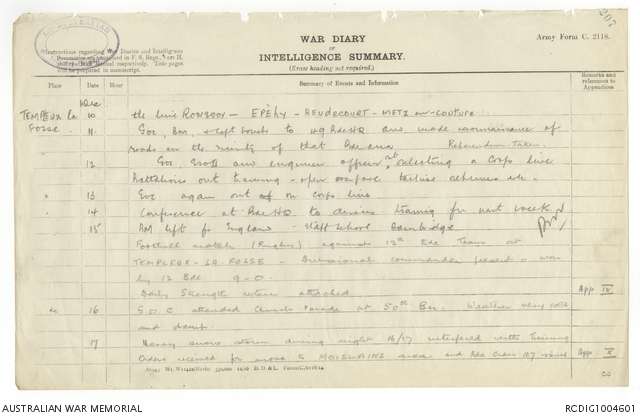 207
WAR DIARY
OR
INTELLIGENCE SUMMARY.
(Erase heading not required.)
Army Form C. 2118.
Instructions regarding War Diaries and Intelligence
Summaries are contained in F. S. Regs., Part II.
and the Staff Manual respectively. Title pages
will be prepared in manuscript.
Place
Date
Hour
Summary of Events and Information
Remarks and
references to
Appendices
TEMPLEUX la
FOSSE
Dec
10
the line RONSSOY - EPÉHY - HEUDECOURT - METZ en COUTURE
11
Goc, Bm, to HQ Bde HQ and made reconnaissance of
roads in the vicinity of that Bde area Referendum Taken.
12
Goc Grott and engineer officer selecting a Corps line
Battalions out training - open warfare tactical schemes etc.
13
Goc again out on Corps line
14
Conference at Bde HQ to discuss training for next week
15
BM left for England - Staff School Cambridge
Football match (Rugby) against 12th Bde Team at
TEMPLEUX - LA FOSSE - Divisional commander present - won
by 12 Bde 9-0.
Daily Strength return attached
App IV
16
G.O.C attended Church Parade at 50th Bn. Weather very cold
and damp.
17
Heavy snow storm during night 16/17 interfered with Training
Orders received for move to MOISLAINS area and Bde Order 127 issued
App V